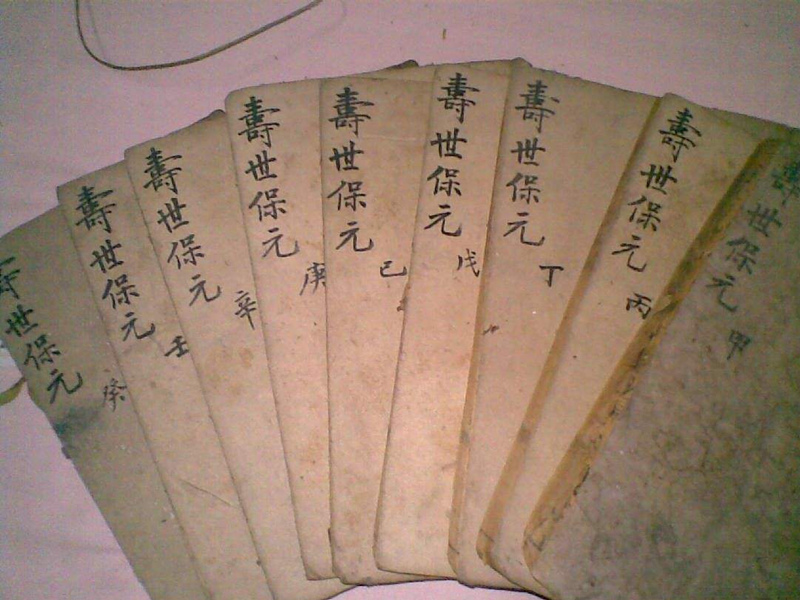 壽世保元
甲
壽世保元
丙
壽世保元
丁
壽世保元
戊
壽世保元
己
壽世保元
庚
壽世保元
辛
壽世保元
壬
壽世保元
癸